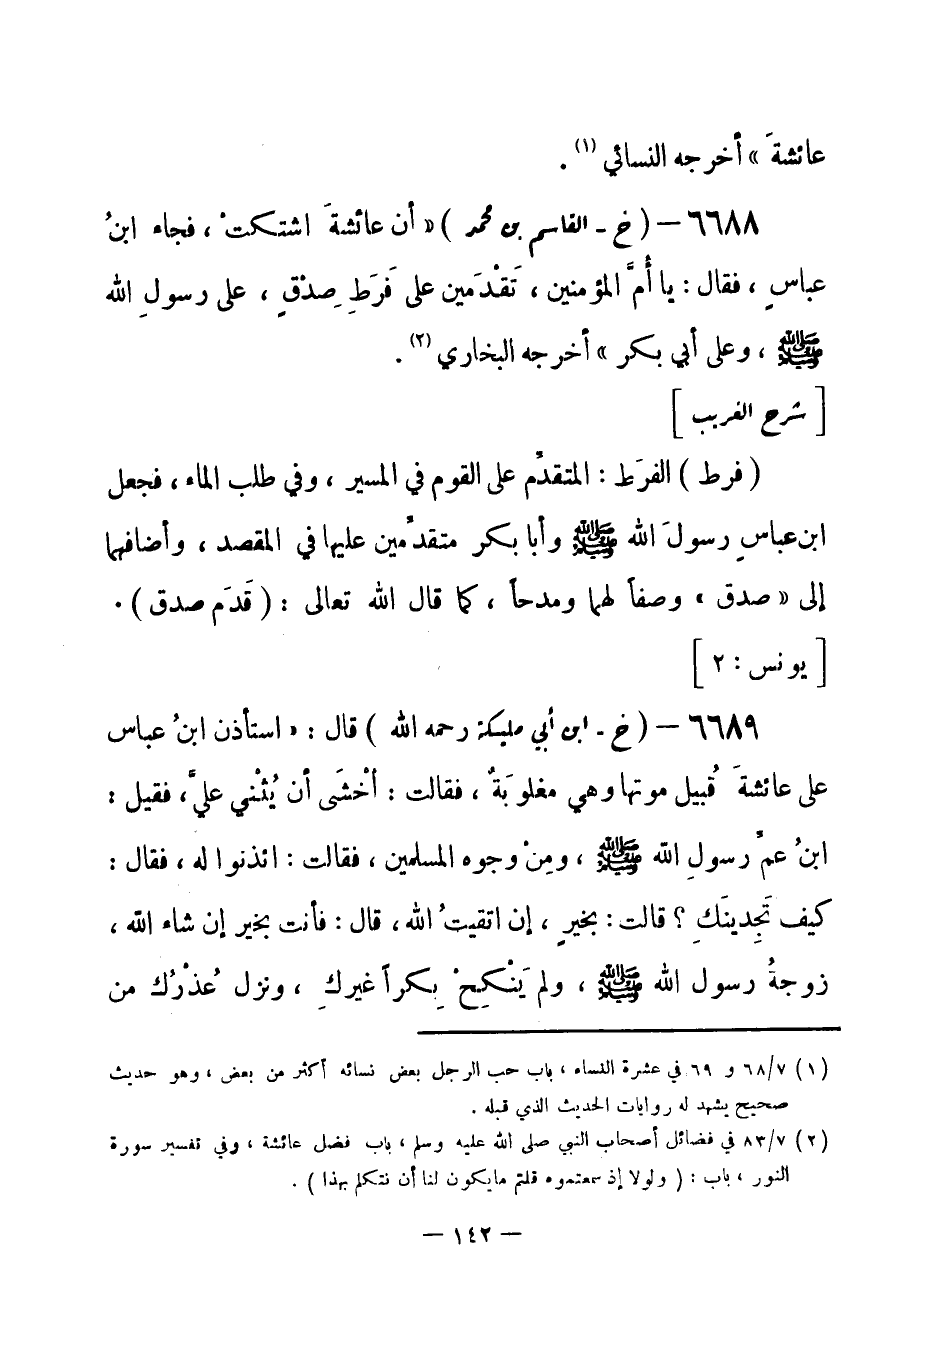 عائشةَ » أخرجه النسائي (١) .
٦٦٨٨ – ( خ - القاسم بن محمد ) « أن عائشةَ اشتكتْ ، فجاء ابنُ
عباسٍ ، فقال : يا أُمَّ المؤمنين ، تَقْدَمين على فَرَطِ صِدْقٍ ، على رسولِ الله
ﷺ ، وعلى أبي بكر » أخرجه البخاري (٢) .
[ شرح الغريب ]
( فرط ) الفرَط : المتقدِّم على القوم في المسير ، وفي طلب الماء ، فجعل
ابن عباسٍ رسولَ الله ﷺ وأبا بكر متقدِّمين عليها في المقصد ، وأضافهما
إلى « صدق » وصفاً لهما ومدحاً ، كما قال الله تعالى : ( قَدَم صدق ) .
[ يونس : ٢ ]
٦٦٨٩ – ( خ - ابن أبي مليكة رحمه الله ) قال : « استأذن ابنُ عباس
على عائشةَ قُبيل موتها وهي مغلوبَةٌ ، فقالت : أخْشَى أن يُثْني عليَّ ، فقيل :
ابنُ عمِّ رسولِ الله ﷺ ، ومِنْ وجوه المسلمين ، فقالت : ائذنوا له ، فقال :
كيف تَجِدينَكِ ؟ قالت : بخيرٍ ، إن اتقيتُ الله ، قال : فأنت بخير إن شاء الله ،
زوجةُ رسول الله ﷺ ، ولم يَنْكِحْ بِكراً غيركِ ، ونزل عُذْرُك من
(١) ٦٨/٧ و ٦٩ في عشرة النساء ، باب حب الرجل بعض نسائه أكثر من بعض ، وهو حديث
صحيح يشهد له روايات الحديث الذي قبله .
(٢) ٨٣/٧ في فضائل أصحاب النبي صلى الله عليه وسلم ، باب فضل عائشة ، وفي تفسير سورة
النور ، باب : ( ولولا إذ سمعتموه قلتم مايكون لنا أن نتكلم بهذا ) .
– ١٤٢ –